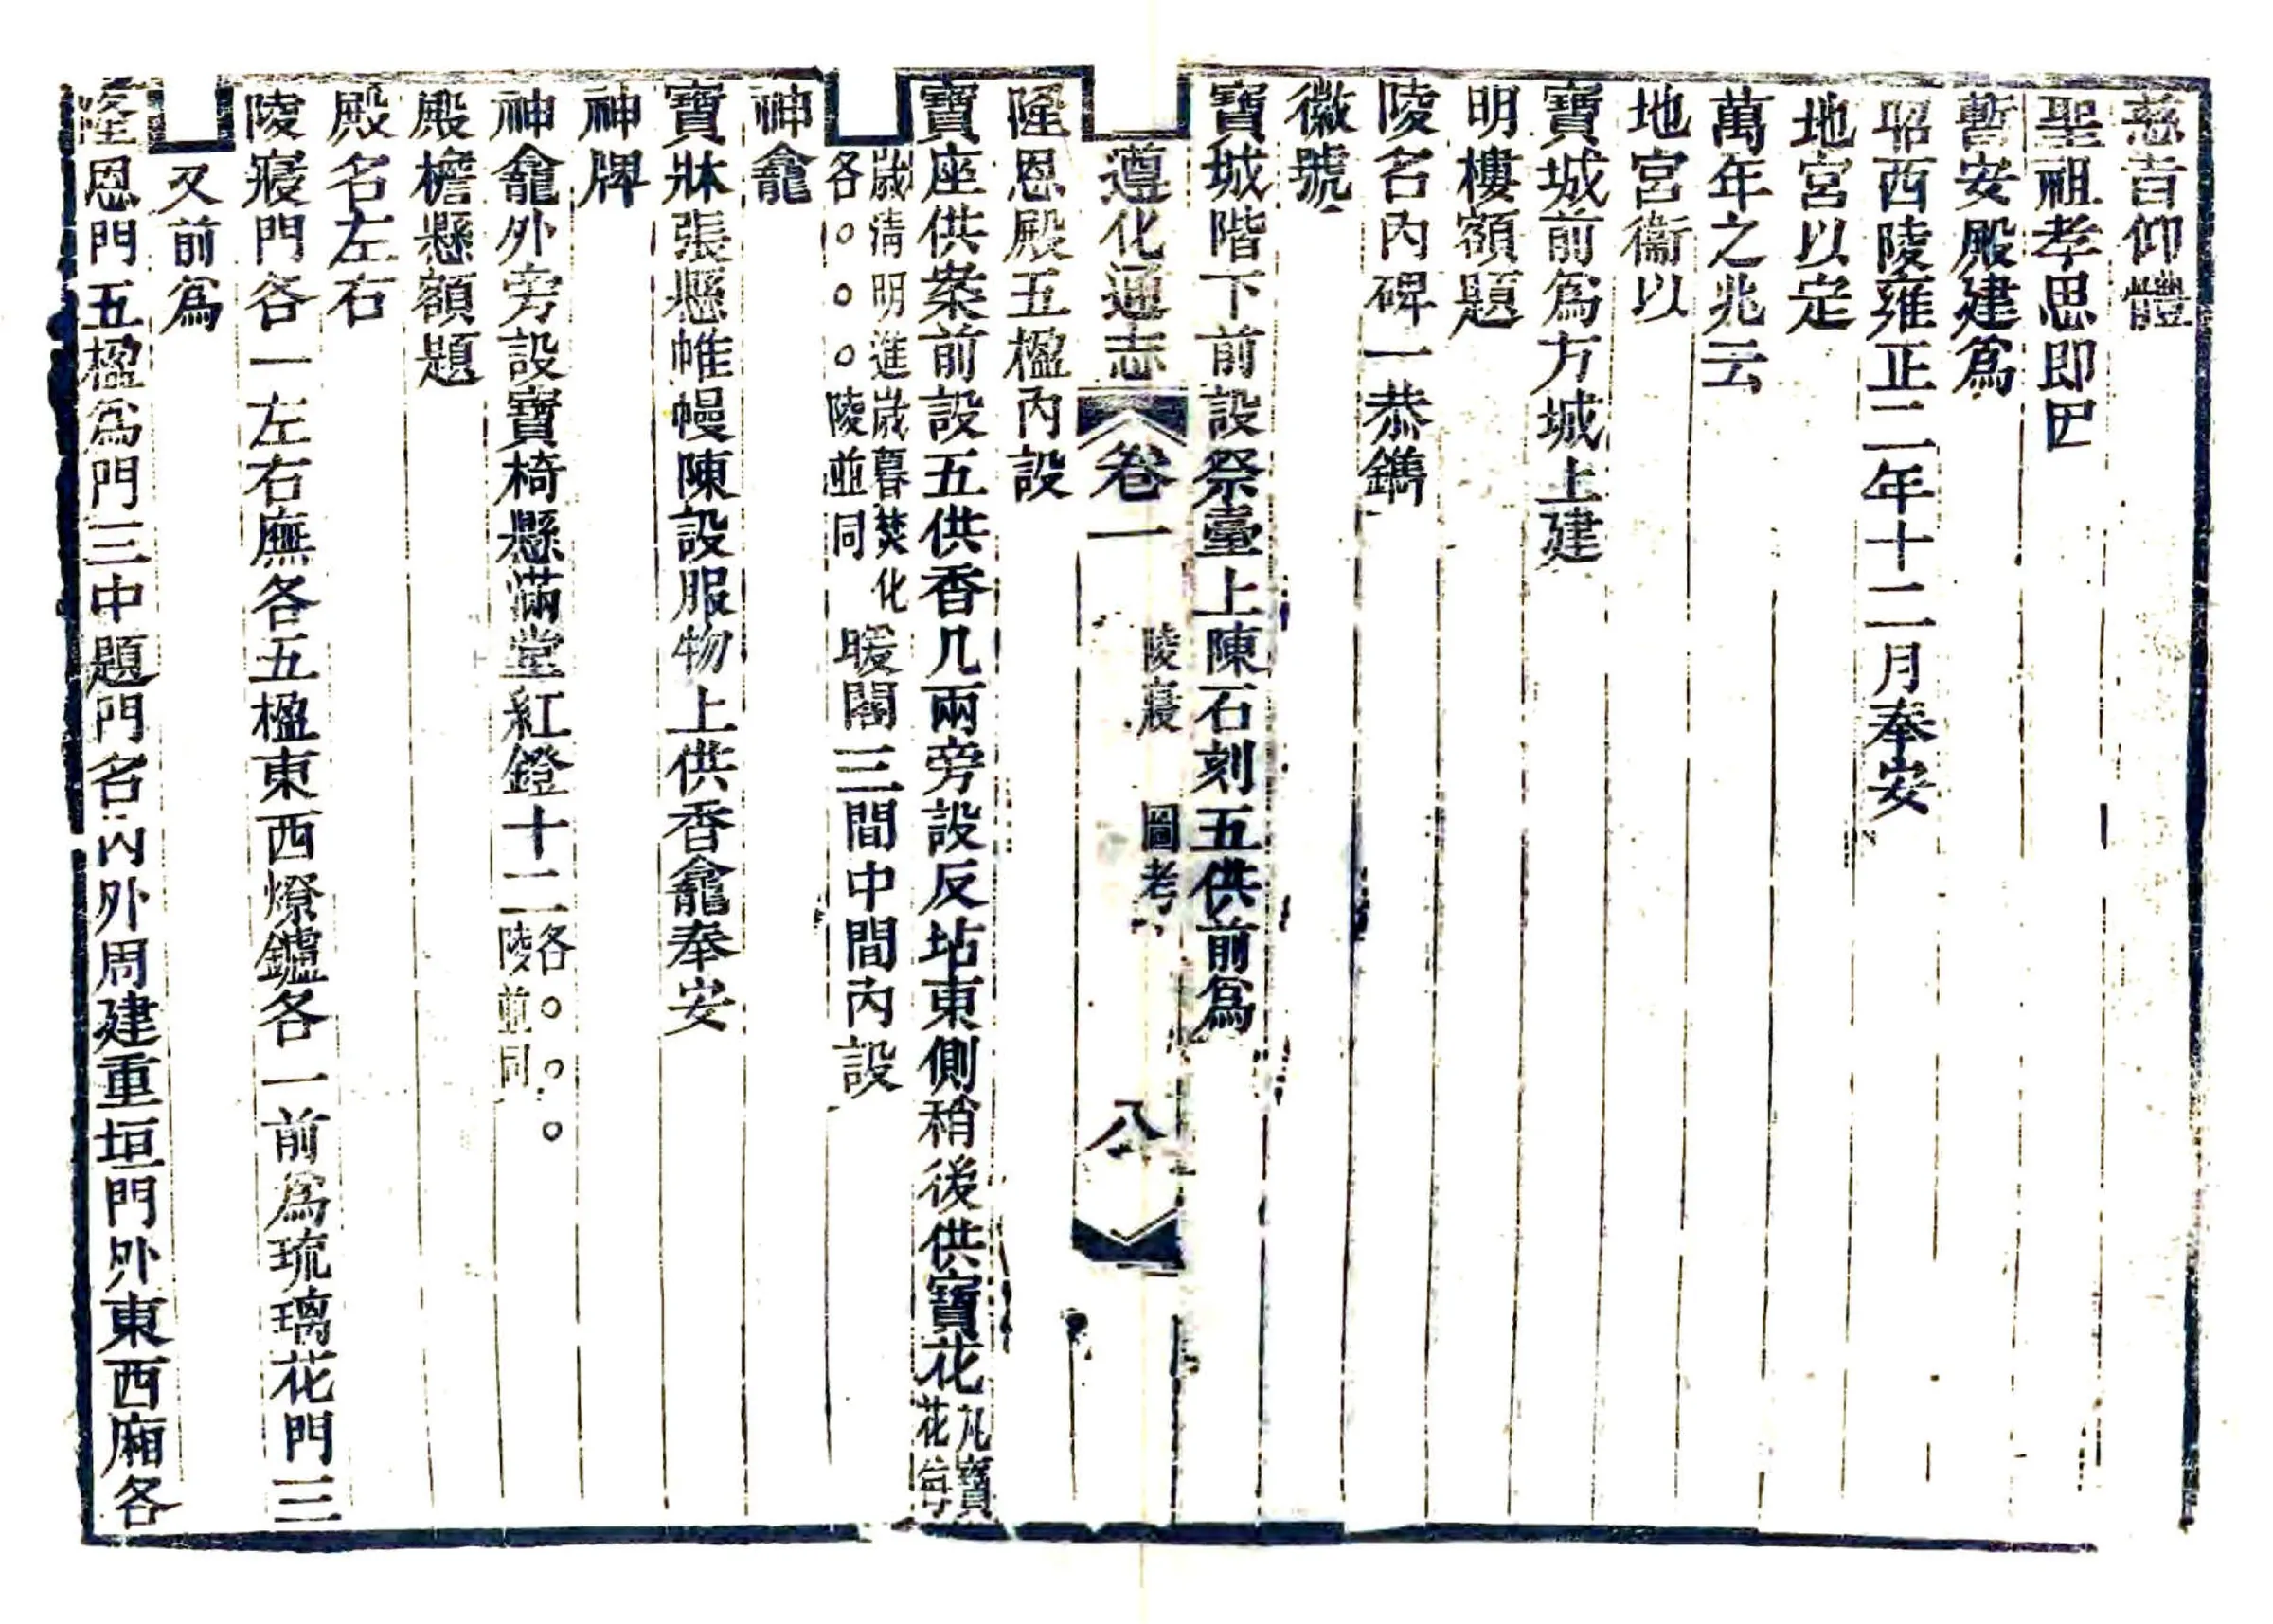 慈旨仰體
聖祖孝思即巴
暫安殿建爲
昭西陵雍正二年十二月奉安
地宮以定
萬年之兆云
地宮衞以
寶城前爲方城上建
明樓額題
陵名內碑一恭鐫
徽號
寶城階下前設祭臺上陳石刻五供前爲
遵化通志 卷一 陵寢 圖考 八
隆恩殿五楹內設
寶座供案前設五供香几兩旁設反坫東側稍後供寶花凡寶花每
歲清明進歲暮焚化各○○○陵並同暖閣三間中間內設
神龕
寶牀張懸帷幔陳設服物上供香龕奉安
神牌
神龕外旁設寶椅懸滿堂紅鐙十二各○○○陵並同
殿檐懸額題
殿名左右
陵寢門各一左右廡各五楹東西燎鑪各一前爲琉璃花門三
又前爲
隆恩門五楹爲門三中題門名內外周建重垣門外東西廂各